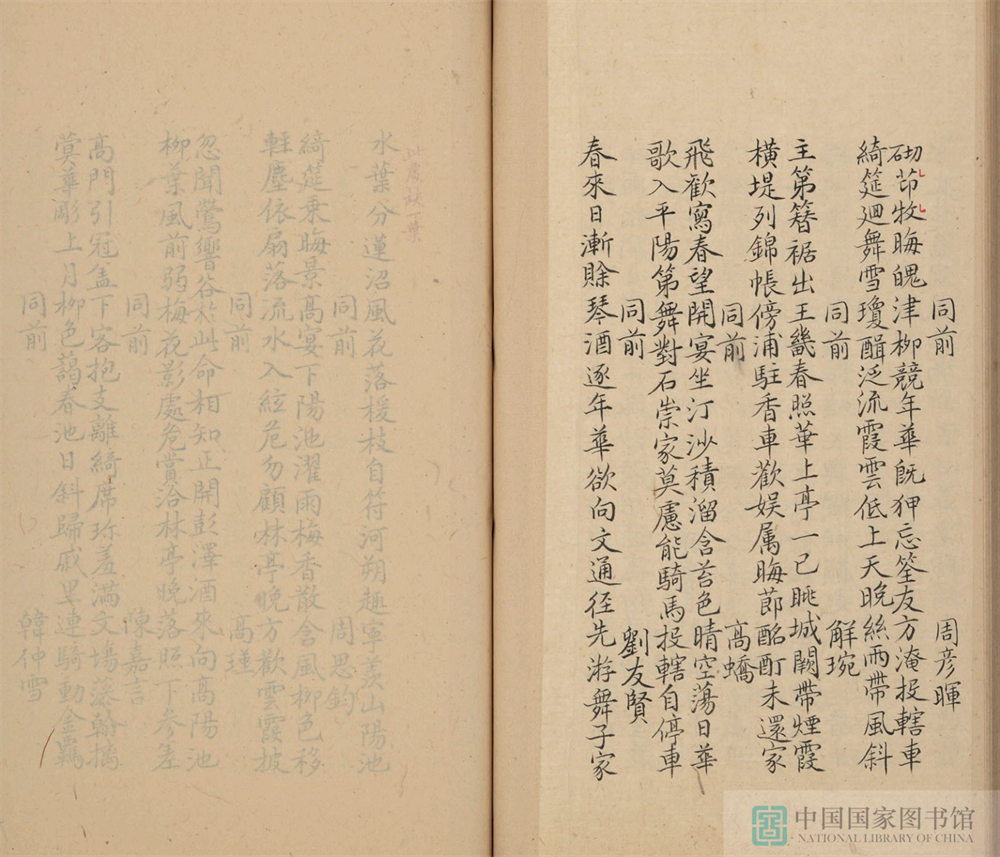 同前 周彦暉
砌茆牧晦魄津柳競年華既狎忘筌友方淹投轄車
綺筵廻舞雪瓊醑泛流霞雲低上天晚絲雨帶風斜
同前 解琬
主第簪裾出王畿春照華上亭一已眺城闕帶煙霞
橫堤列錦帳傍浦駐香車歡娛属晦莭酩酊未還家
同前 高蟜
飛歡寫春望開宴坐汀沙積溜含苔色晴空蕩日華
歌入平陽第舞對石崇家莫慮能騎馬投轄自停車
同前 劉友賢
春來日漸賒琴酒逐年華欲向文通径先游舞子家
此處缺一葉
水葉分蓮沼風花落槎枝自符河朔趣寧羨山陽池
同前 周思鈞
綺筵乗晦景髙宴下陽池濯雨梅香散含風柳色移
軽塵依扇落流水入絃危勿顧林亭晚方歡雲霞披
同前 高瑾
忽聞鶯響谷於此命相知正開彭澤酒來向高陽池
柳葉風前弱梅花影處危賞洽林亭晚落照下參差
同前 陳嘉言
高門引冠盖下客抱支離綺席珎羞滿文場添翰摛
蓂華彫上月柳色藹春池日斜歸戚里連騎動金羈
同前 韓仲雪
中国国家图书馆
NATIONAL LIBRARY OF CHINA